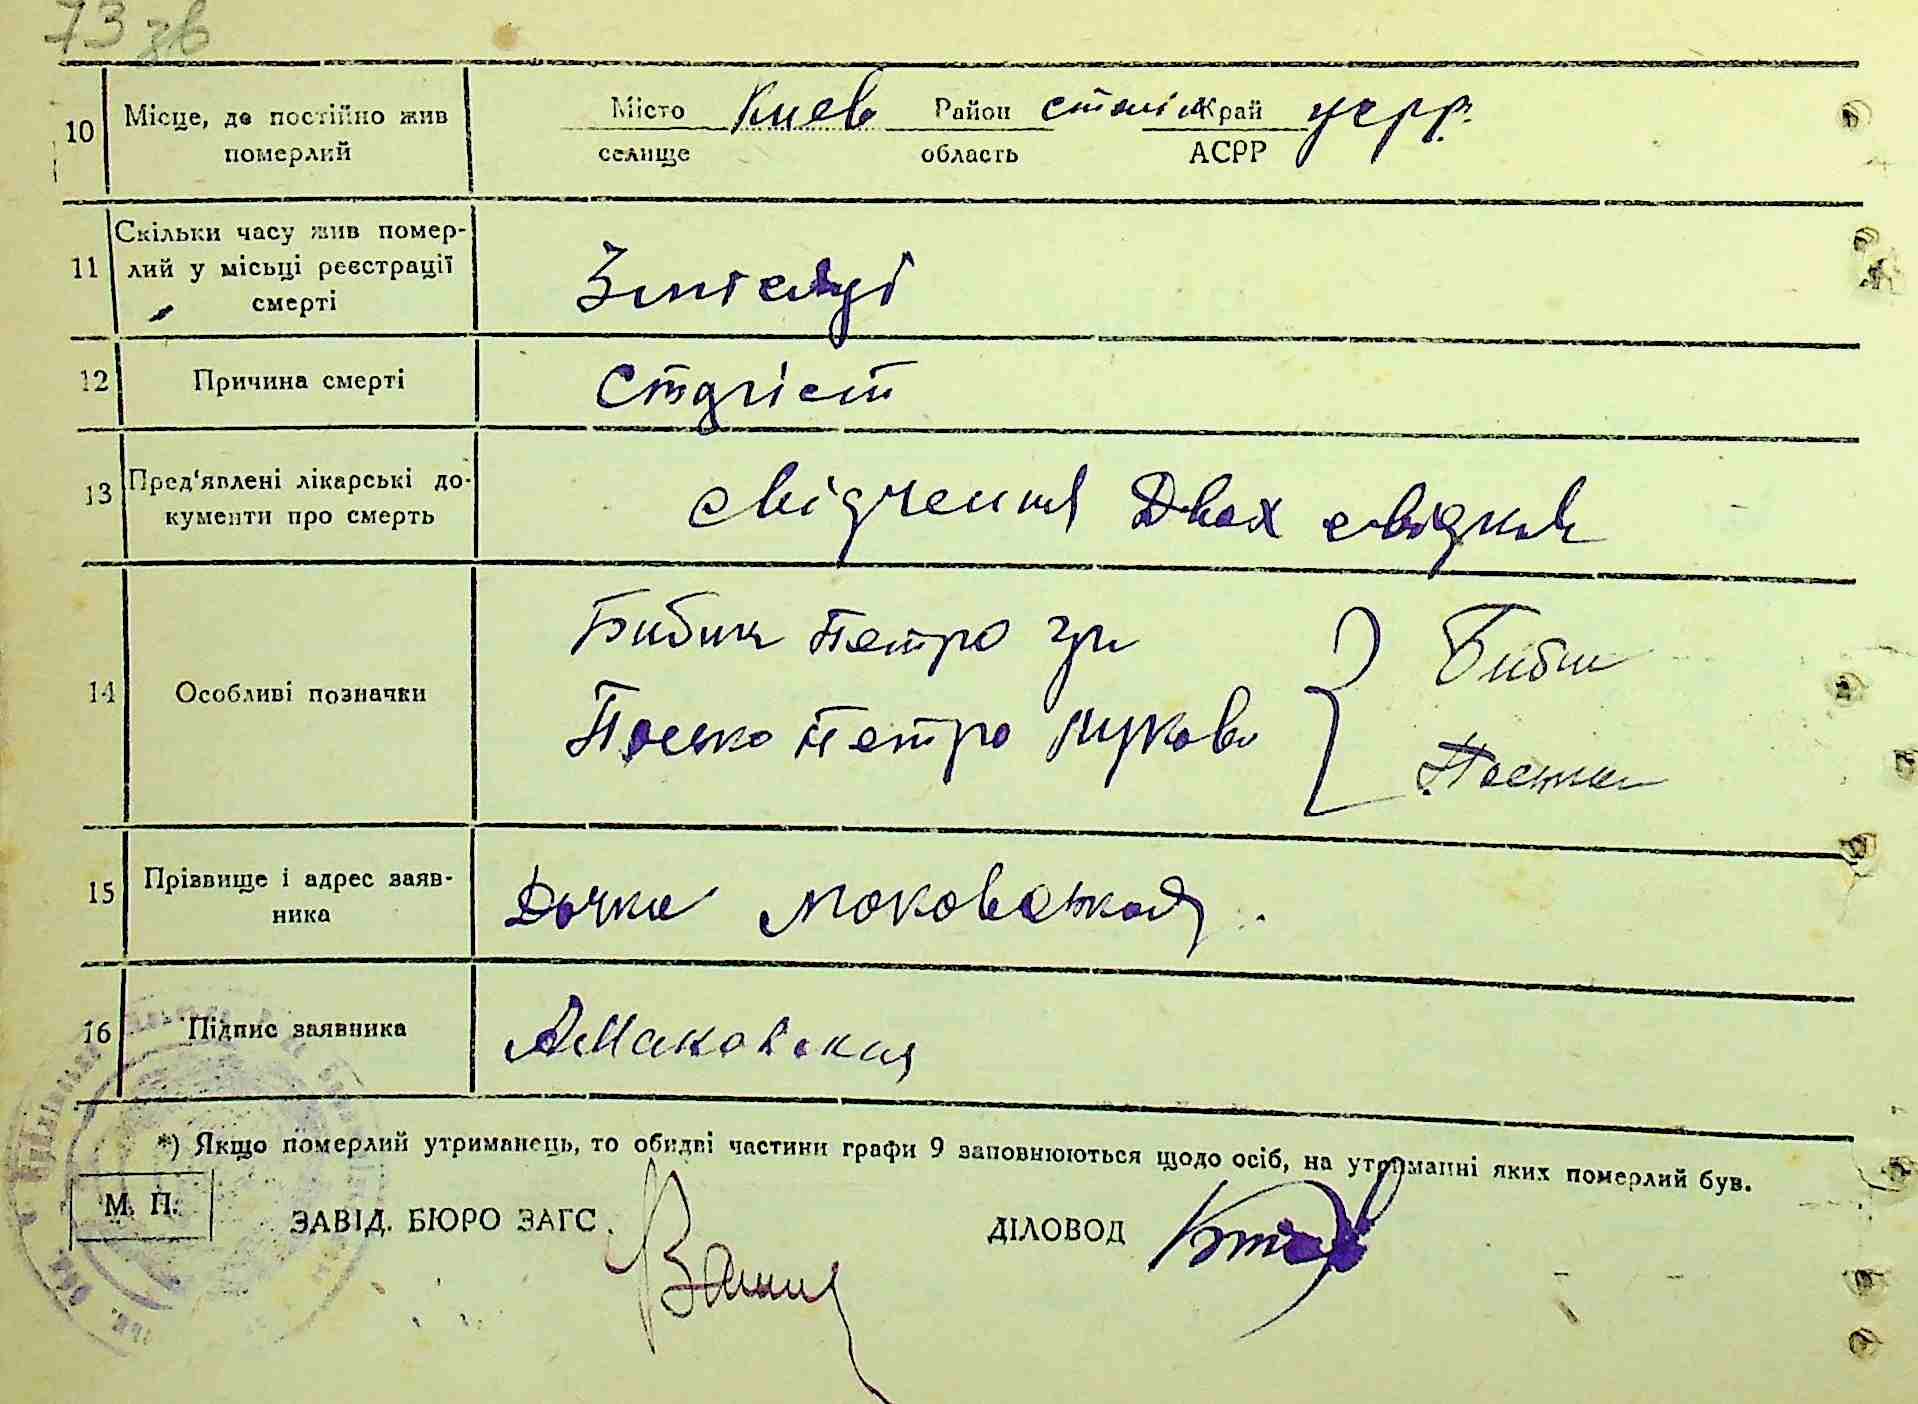 73 зв
10 Місце, де постійно жив померлий
Місто Киев Район сталін Край усрр.
селище область АСРР
11 Скільки часу жив помер-
лий у місьці реєстрації
смерті
3 місяці
12 Причина смерті Старіст
13 Пред'явлені лікарські до-
кументи про смерть
свідчення Двох свідків
14 Особливі позначки
Бибик Петро Гр
Посько Петро Луково
Бибик
15 Прізвище і адрес заяв-
ника
Дочка Моковская
16 Підпис заявника АМаковская
*) Якщо померлий утриманець, то обидві частини графи 9 заповнюються щодо осіб, на утриманні яких померлий був.
М. П.
ЗАВІД. БЮРО ЗАГС ДІЛОВОД